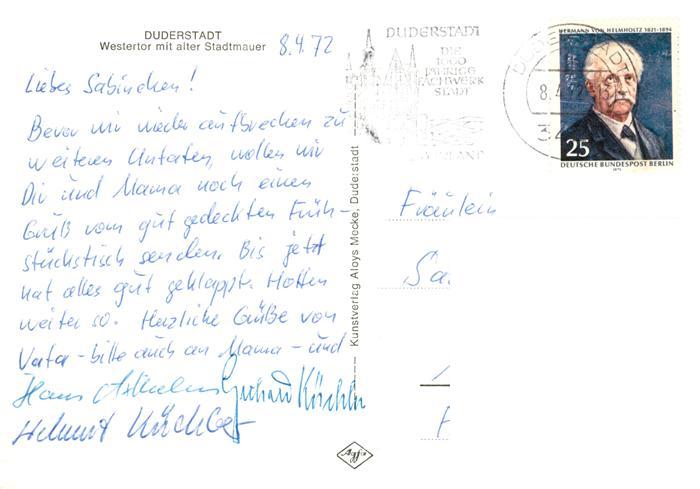 DUDERSTADT
Westertor mit alter Stadtmauer
8.4.72
Liebes Sabinchen!
Bevor wir wieder aufbrechen zu
weiteren Untaten, wollen wir
Dir und Mama noch einen
Gruß vom gut gedeckten Früh-
stückstisch senden. Bis jetzt
hat alles gut geklappt. Hoffen
weiter so. Herzliche Grüße von
Vater - bitte auch an Mama - und
Hans
Gerhard Küchler
Helmut Küchler
Kunstverlag Aloys Mecke, Duderstadt
DUDERSTADT
DIE
1000
JÄHRIGE
FACHWERK
STADT
8.4.72
HERMANN VON HELMHOLTZ 1821-1894
25
DEUTSCHE BUNDESPOST BERLIN
1971
Fräulein
Sa
Agfa